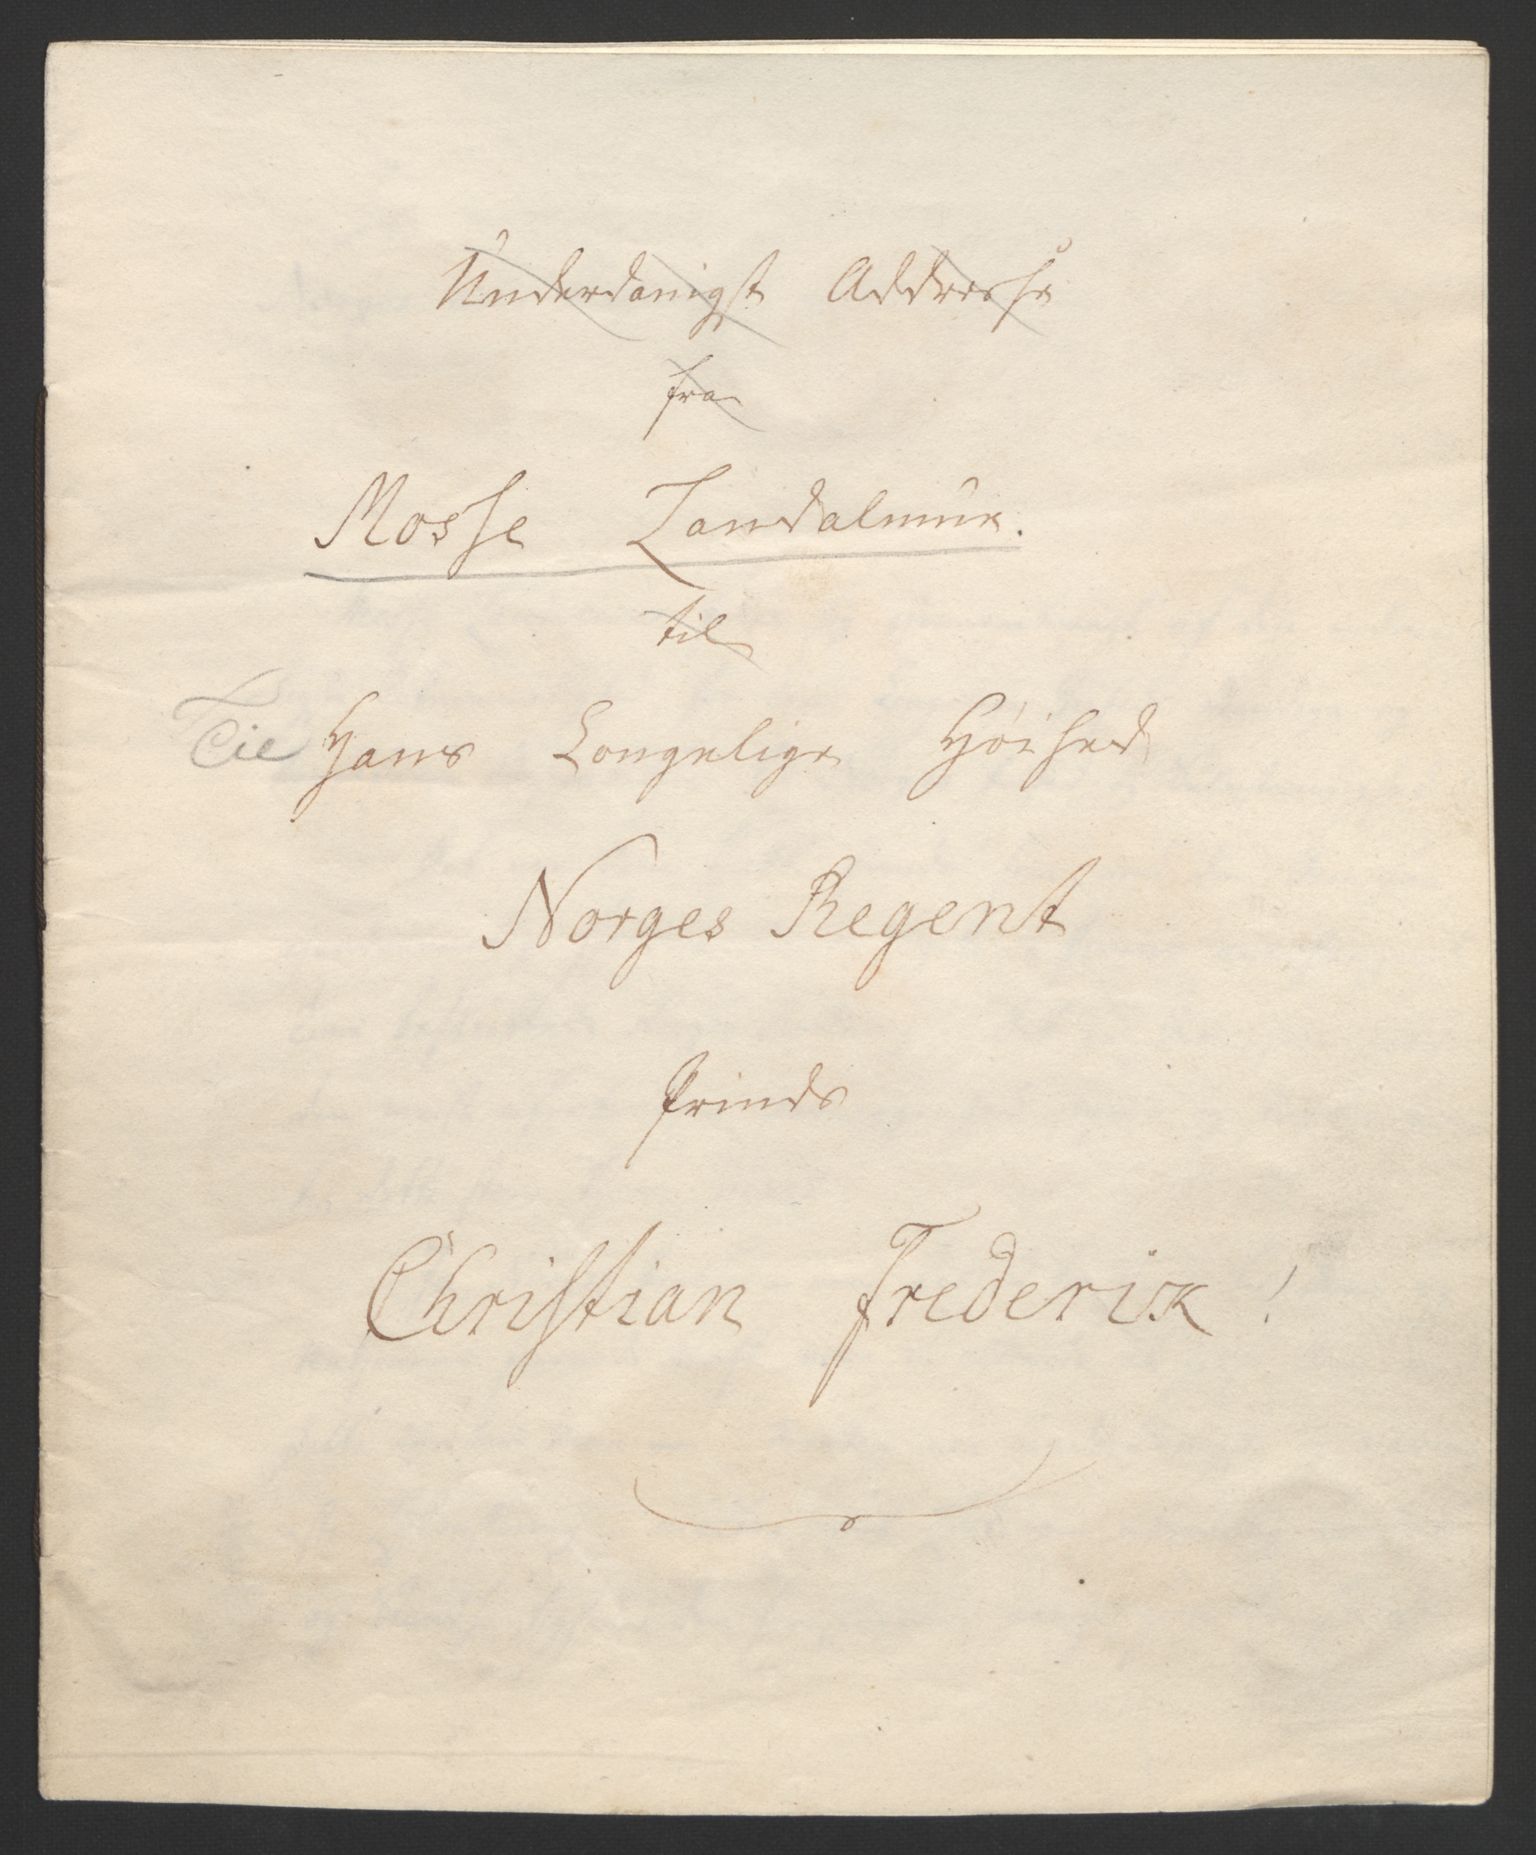 Underdanigst Addresse
fra
Mosse Landalmue.
til
Til Hans Kongelige Höihed
Norges Regent
Prinds
Christian Frederik!